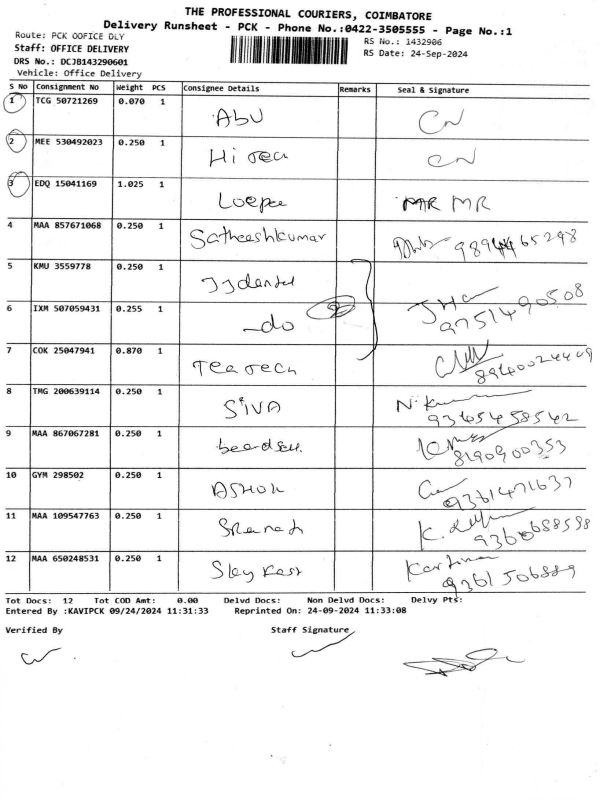 THE PROFESSIONAL COURIERS, COIMBATORE
Delivery Runsheet - PCK - Phone No.:0422-3505555 - Page No.:1
Route: PCK OOFICE DLY
RS No.: 1432906
Staff: OFFICE DELIVERY
RS Date: 24-Sep-2024
DRS No.: DCJB143290601
Vehicle: Office Delivery
S No Consignment No Weight PCS Consignee Details Remarks Seal & Signature
1 TCG 50721269 0.070 1 ABU CN
2 MEE 530492023 0.250 1 Hi Tech CN
3 EDQ 15041169 1.025 1 MR MR
4 MAA 857671068 0.250 1 Satheeshkumar
5 KMU 3559778 0.250 1 JJ dental
6 IXM 507059431 0.255 1 -do 9751490508
7 COK 25047941 0.870 1 Tea Tech
8 TMG 200639114 0.250 1 SIVA 9345458542
9 MAA 867067281 0.250 1 8190900353
10 GYM 298502 0.250 1 ASHOK 9361471637
11 MAA 109547763 0.250 1
12 MAA 650248531 0.250 1
Tot Docs: 12 Tot COD Amt: 0.00 Delvd Docs: Non Delvd Docs: Delvy Pts:
Entered By :KAVIPCK 09/24/2024 11:31:33 Reprinted On: 24-09-2024 11:33:08
Verified By Staff Signature